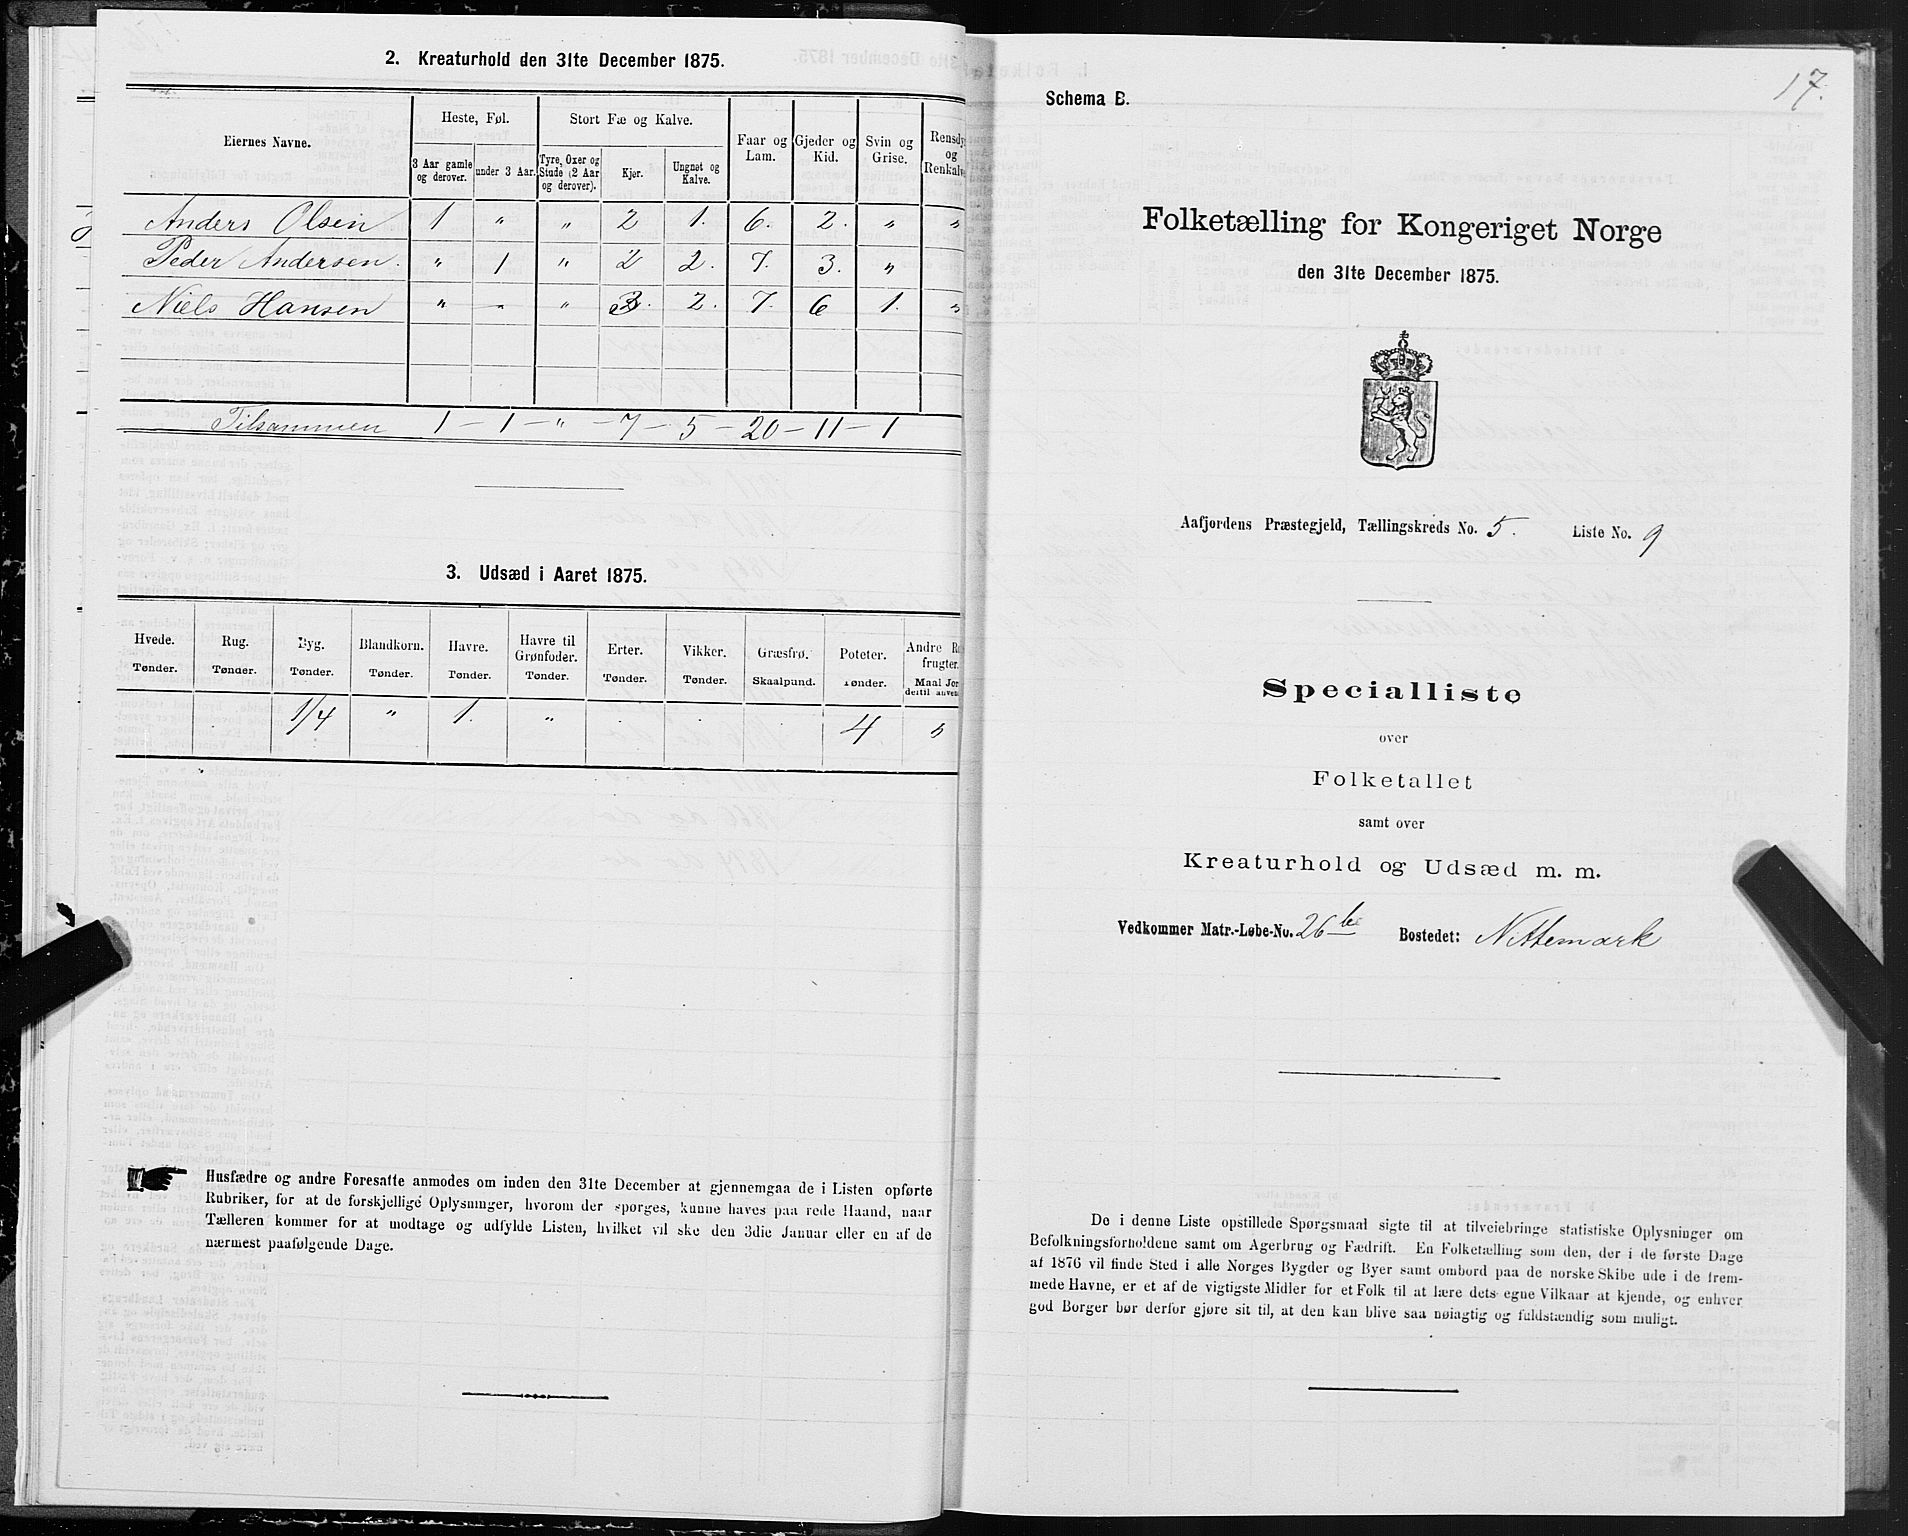 2. Kreaturhold den 31te December 1875.
Eiernes Navne.
Heste, Føl.
Stort Fæ og Kalve.
Faar og Lam.
Gjeder og Kid.
Svin og Grise.
og
3 Aar gamle og derover.
under 3 Aar.
Tyre, Oxer og Stude (2 Aar og derover).
Kjør.
Ungnøt og Kalve.
Anders Olsen 1 " " 2 1. 6. 2. " "
Peder Andersen. " 1 " 2 2. 7. 3. "
Niels Hansen " " " 3. 2. 7. 6 1. "
Tilsammen 1 – 1 – " – 7 – 5 – 20 – 11 – 1
3. Udsæd i Aaret 1875.
Hvede. Tønder.
Rug. Tønder.
Byg. Tønder.
Blandkorn. Tønder.
Havre. Tønder.
Havre til Grønfoder. Tønder.
Erter. Tønder.
Vikker. Tønder.
Græsfrø. Skaalpund.
Poteter. Tønder.
Andre
frugter.
Maal
dertil
1/4 " 1. " 4 "
Husfædre og andre Foresatte anmodes om inden den 31te December at gjennemgaa de i Listen opførte
Rubriker, for at de forskjellige Oplysninger, hvorom der spørges, kunne haves paa rede Haand, naar
Tælleren kommer for at modtage og udfylde Listen, hvilket vil ske den 3die Januar eller en af de
nærmest paafølgende Dage.
17.
Schema B.
Folketælling for Kongeriget Norge
den 31te December 1875.
Aafjordens Præstegjeld, Tællingskreds No. 5. Liste No. 9
Specialliste
over
Folketallet
samt over
Kreaturhold og Udsæd m. m.
Vedkommer Matr.-Løbe-No. 26 b Bostedet: Nittemark
De i denne Liste opstillede Spørgsmaal sigte til at tilveiebringe statistiske Oplysninger om
Befolkningsforholdene samt om Agerbrug og Fædrift. En Folketælling som den, der i de første Dage
af 1876 vil finde Sted i alle Norges Bygder og Byer samt ombord paa de norske Skibe ude i de frem-
mede Havne, er et af de vigtigste Midler for et Folk til at lære dets egne Vilkaar at kjende, og enhver
god Borger bør derfor gjøre sit til, at den kan blive saa nøiagtig og fuldstændig som muligt.